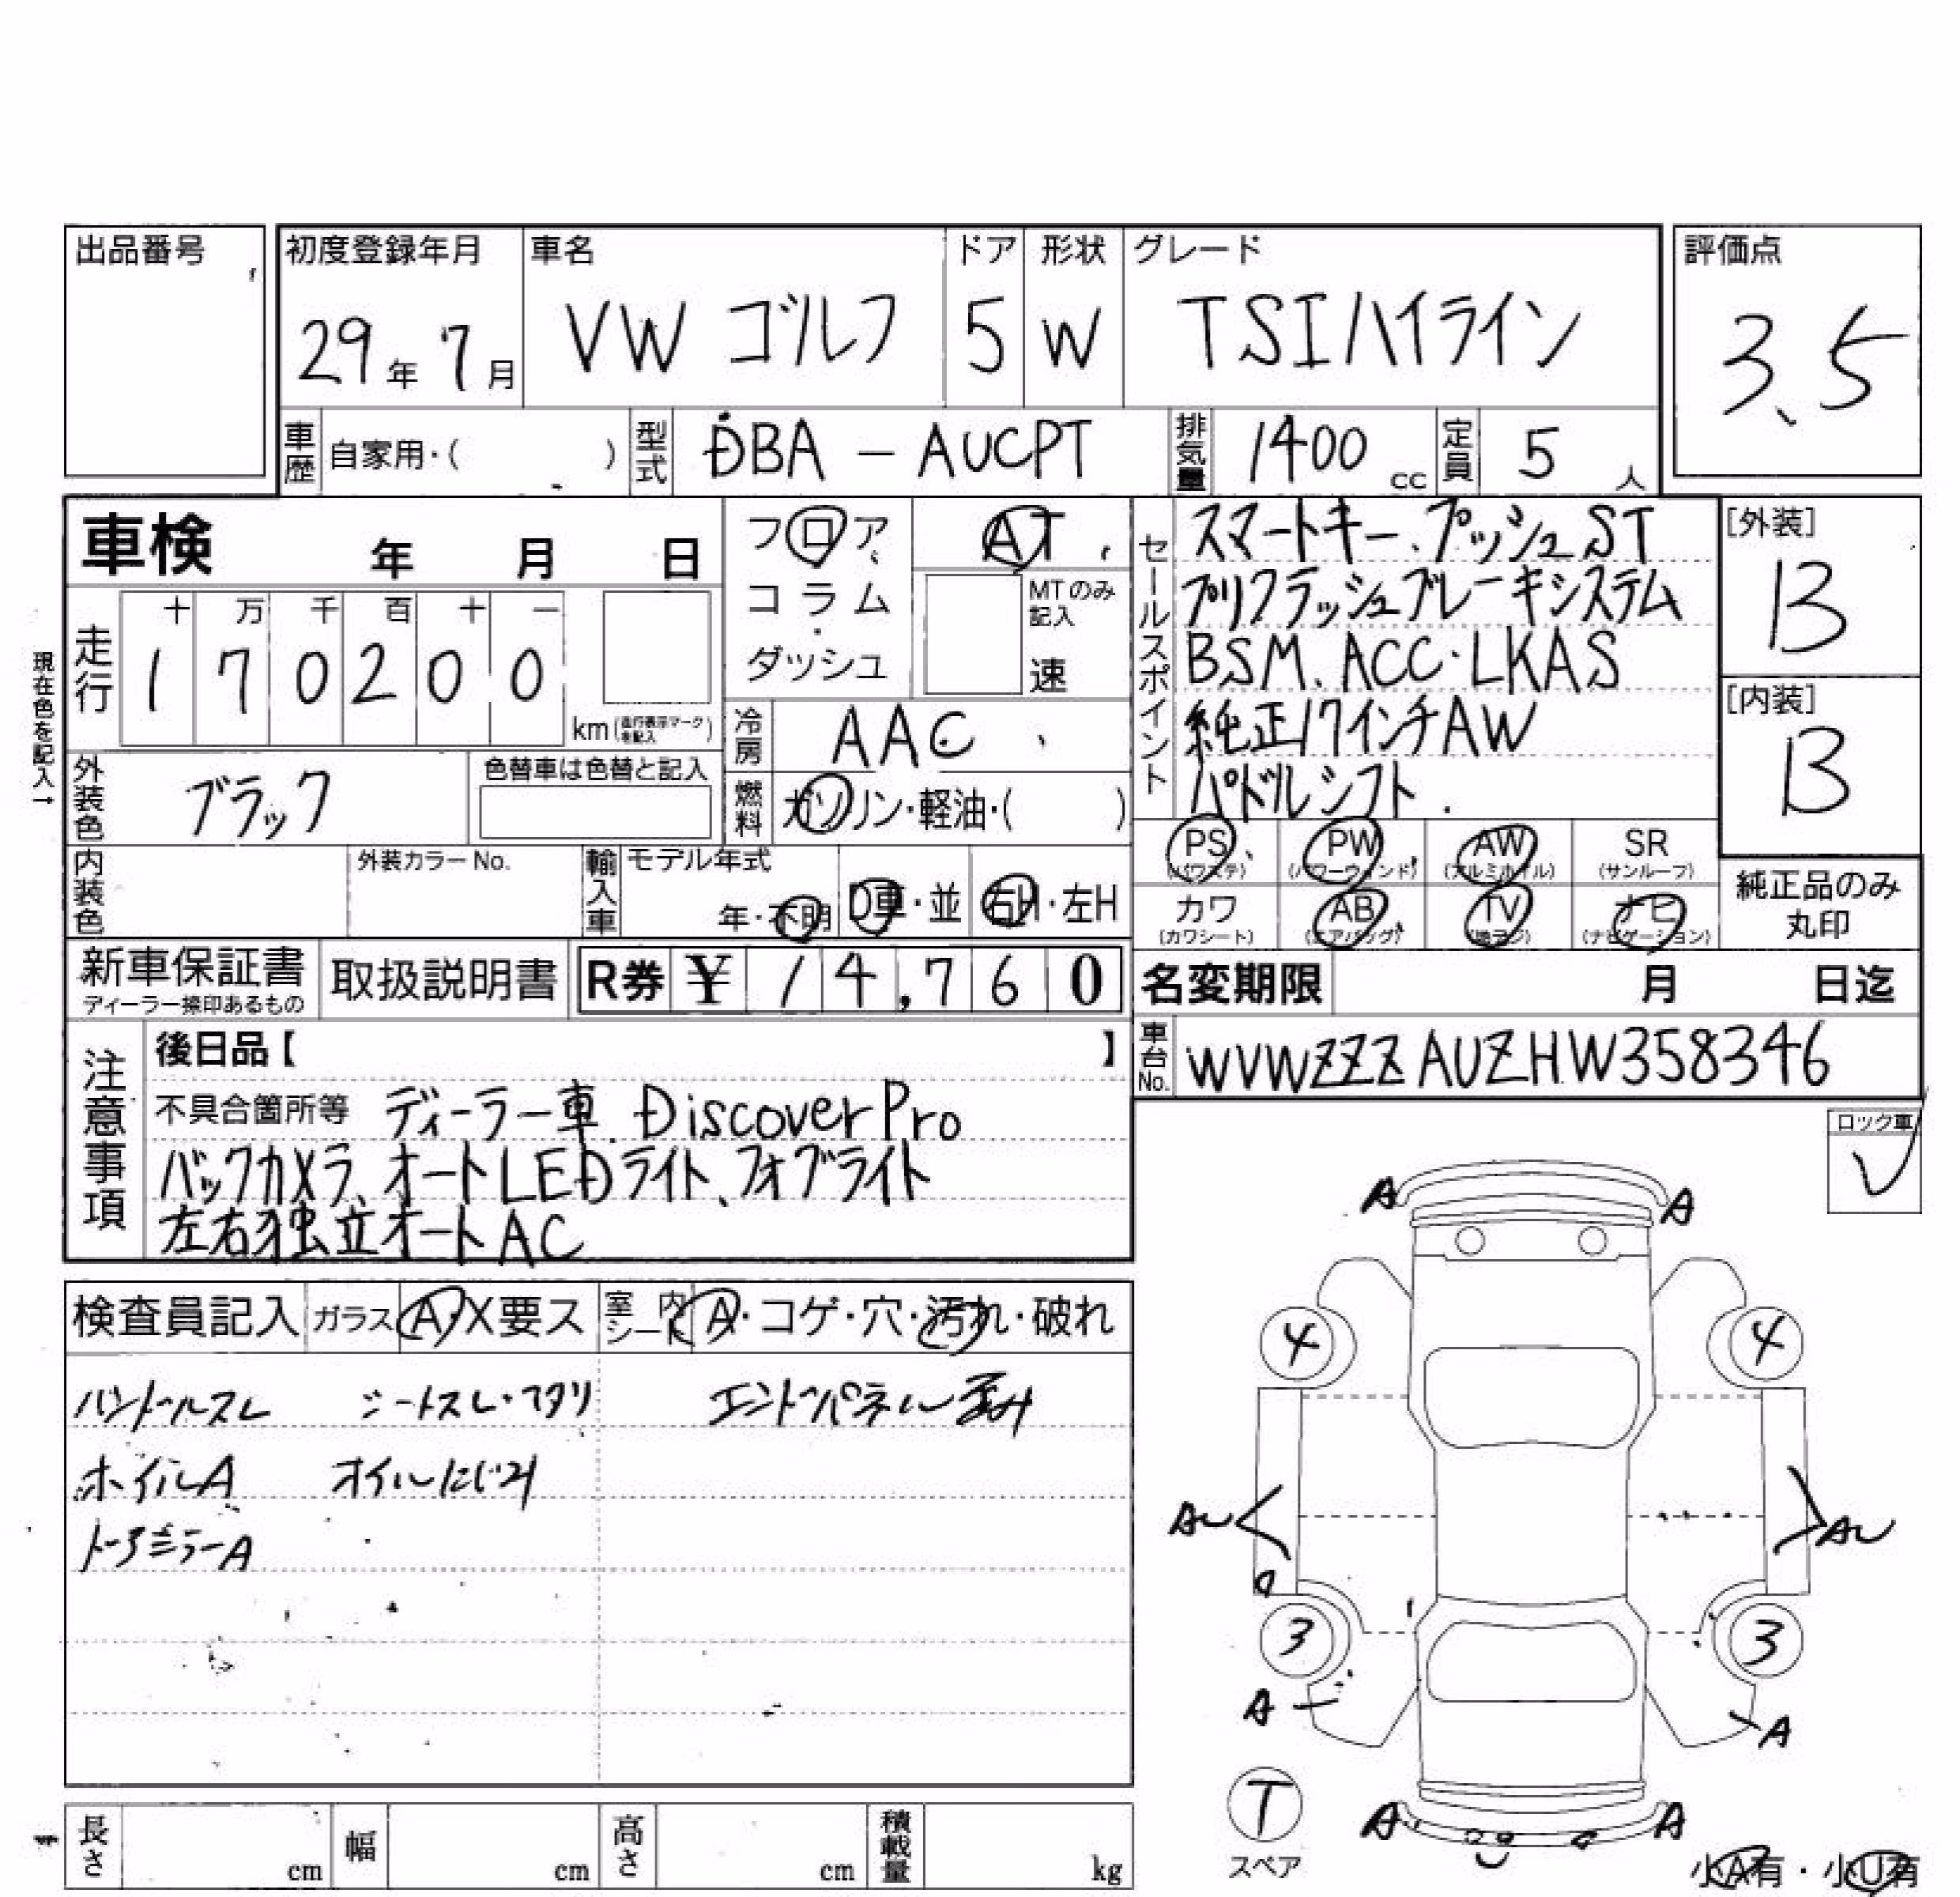 出品番号
初度登録年月 車名 ドア 形状 グレード 評価点
29年 7月 VW ゴルフ 5 W TSIハイライン 3.5
車歴 自家用・( ) 型式 DBA - AUCPT 排気量 1400 cc 定員 5 人
車検 年 月 日
フロア AT
コラム・
ダッシュ
MTのみ記入
速
走行 十 万 千 百 十 一
1 7 0 2 0 0
km (走行表示マークを記入)
現在色を記入→
冷房 AAC
外装色 ブラック 色替車は色替と記入
燃料 ガソリン・軽油・( )
内装色 外装カラーNo. 輸入車 モデル年式
年・不明 D車・並 右H・左H
セールスポイント
スマートキー、プッシュST
プリクラッシュブレーキシステム
BSM、ACC・LKAS
純正17インチAW
パドルシフト
[外装]
B
[内装]
B
PS (パワステ) PW (パワーウィンド) AW (アルミホイル) SR (サンルーフ)
カワ (カワシート) AB (エアバッグ) TV (地デジ) ナビ (ナビゲーション)
純正品のみ
丸印
新車保証書 取扱説明書 R券 ¥ 14,760
ディーラー捺印あるもの
名変期限 月 日迄
車台No. WVWZZZAUZHW358346
注意事項
後日品【 】
不具合箇所等 ディーラー車、DiscoverPro
バックカメラ、オートLEDライト、フォグライト
左右独立オートAC
ロック車
✓
検査員記入 ガラス A・X要ス 室内シート A・コゲ・穴・汚れ・破れ
ハンドルスレ シートスレ・ヘタリ エンドパネル歪み
ホイルA オイルにじみ
ドアミラーA
A A
4 4
AU AU
3 3
A A
T
スペア
A A
小A有・小U有
長さ cm 幅 cm 高さ cm 積載量 kg